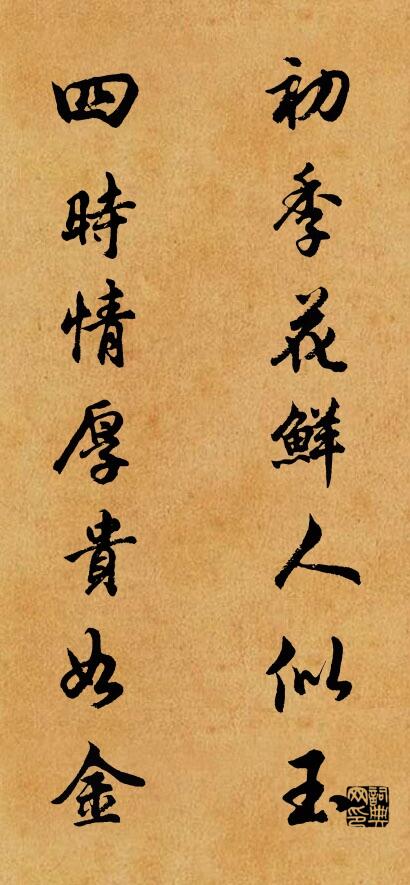 初季花鮮人似玉
四時情厚貴如金
詞典
网印